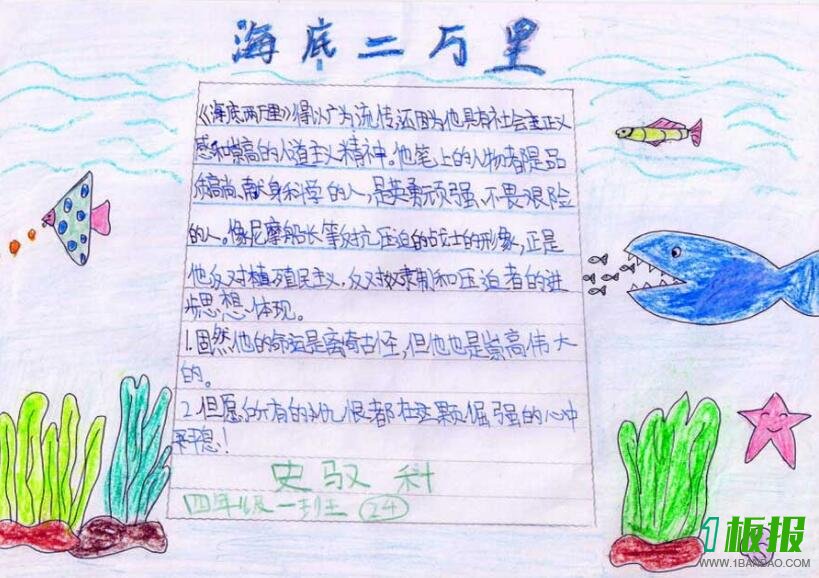 海底二万里
《海底两万里》得以广为流传,还因为他具有社会主正义
感和崇高的人道主义精神。他笔上的人物都是品
质高尚、献身科学的人,是英勇顽强、不畏艰险
的人。像尼摩船长等对抗压迫的战士的形象,正是
他反对植殖民主义,反对奴隶制和压迫者的进
步思想体现。
1.固然他的命运是离奇古怪,但他也是崇高伟大
的。
2.但愿所有的仇恨都在这颗倔强的心中
平息!
史驭科
四年级一班 24
1板报
WWW.1BANBAO.COM